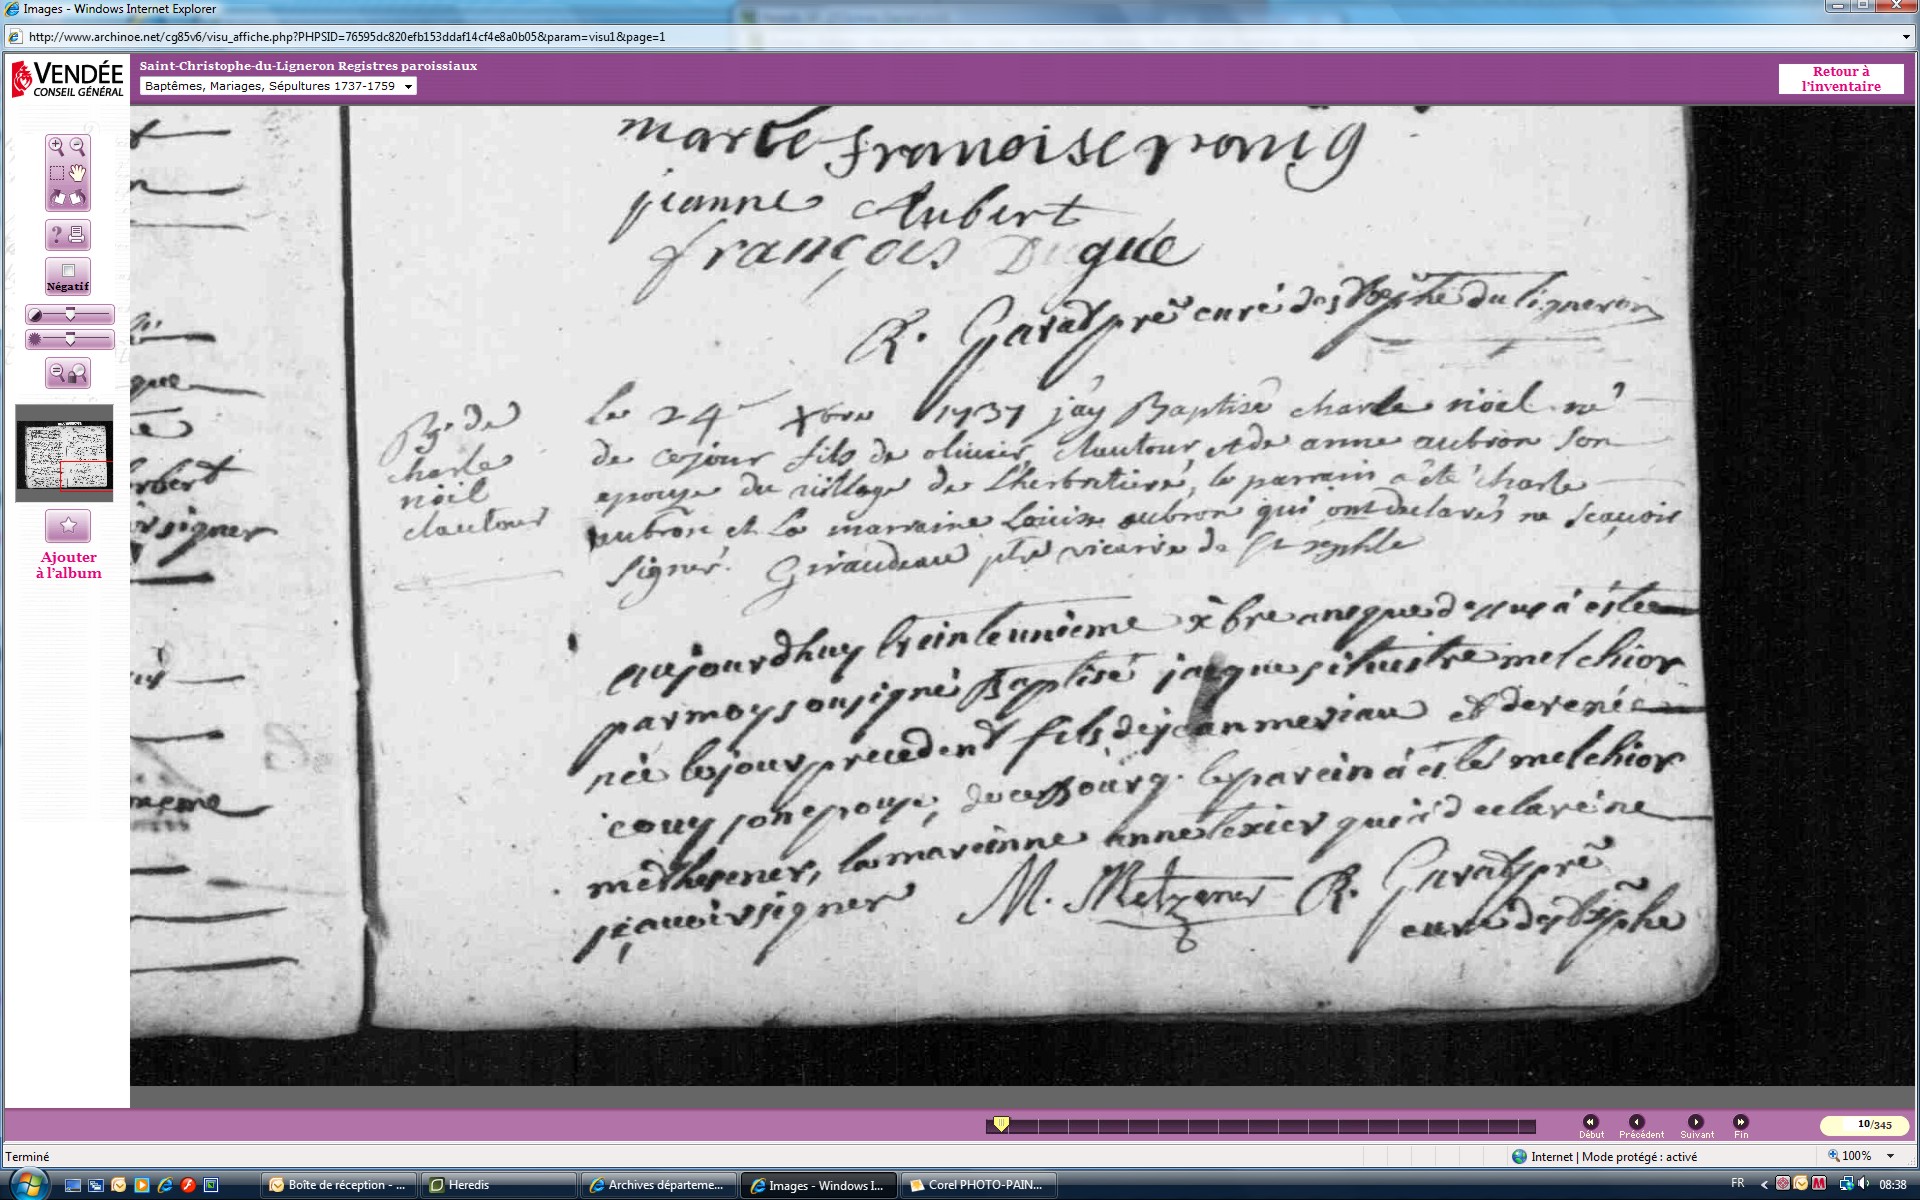 Images - Windows Internet Explorer
http://www.archinoe.net/cg85v6/visu_affiche.php?PHPSID=76595dc820efb153ddaf14cf4e8a0b05&param=visu1&page=1
VENDÉE
CONSEIL GÉNÉRAL
Saint-Christophe-du-Ligneron Registres paroissiaux
Baptêmes, Mariages, Sépultures 1737-1759
Retour à
l'inventaire
Négatif
Ajouter
à l'album
marie francoise
jeanne Aubert
françois Dugue
R. Garad pre curé de St Xphe du ligneron
Bp. de
charle
nöel
clautour
Le 24 Xbre 1737 j'ay Baptisé charle nöel né
de cejour fils de olivier clautour et de anne aubron son
epouse du village de L'herbretiere, le parrain a été charle
aubron et La marraine Louise aubron qui ont declarés ne scavoir
signer. Giraudeau ptre vicaire de St xphle
aujourdhuy trenteunieme xbre anque dessus à estée
par moy sousigné Baptisé jacque silvestre melchior
née le jour precedent fils de jean meriau et de renée
couy son epouse, de ce Bourg. le parein à estés melchior
methsener, la mareinne anne texier qui à declaré ne
sçauoir signer M. Metzener R. Garad pre
curé de St Xphe
rbert
signer
que
meme
10/345
Début
Précédent
Suivant
Fin
Terminé
Internet | Mode protégé : activé
100%
Boîte de réception - ...
Heredis
Archives départeme...
Images - Windows I...
Corel PHOTO-PAIN...
FR
08:38